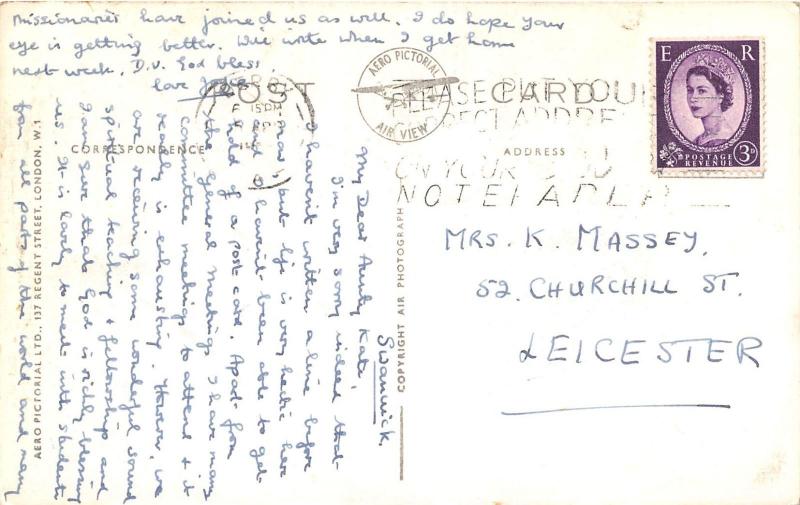 Swanwick.
My Dear Aunty Kate,
I'm very sorry indeed that
I haven't written a line before
now, but life is very hectic here
and I haven't been able to get
hold of a post card. Apart from
the General Meetings I have many
committee meetings to attend & it
really is exhausting. However, we
are receiving some wonderful sound
spiritual teaching & fellowship and
I am sure that God is richly blessing
us. It is lovely to meet with students
from all parts of the world and many
missionaries have joined us as well. I do hope your
eye is getting better. Will write when I get home
next week, D.V. God bless
love
POST CARD
CORRESPONDENCE
ADDRESS
AERO PICTORIAL
AIR VIEW
AERO PICTORIAL LTD., 137 REGENT STREET, LONDON, W.1
COPYRIGHT AIR PHOTOGRAPH
15PM
PLEASE PUT YOUR
ON YOUR
NOTEPAPER
E R
POSTAGE
REVENUE
3D
MRS. K. MASSEY,
52, CHURCHILL ST.
LEICESTER